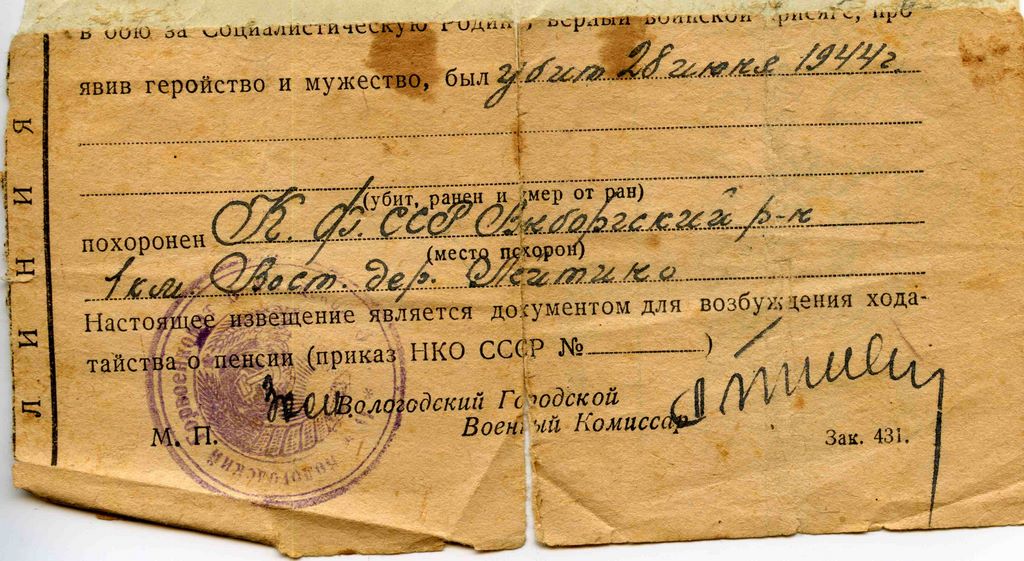 в бою за Социалистическую Родину, верный воинской присяге, про-
явив геройство и мужество, был убит 28 июня 1944г.
(убит, ранен и умер от ран)
похоронен К. Ф. ССР Выборгский р-н
(место похорон)
1 км Вост. дер.
Настоящее извещение является документом для возбуждения хода-
тайства о пенсии (приказ НКО СССР №)
Зам. Вологодский Городской
М. П. Военный Комиссар
Зак. 431.
ЛИНИЯ
Вологодский